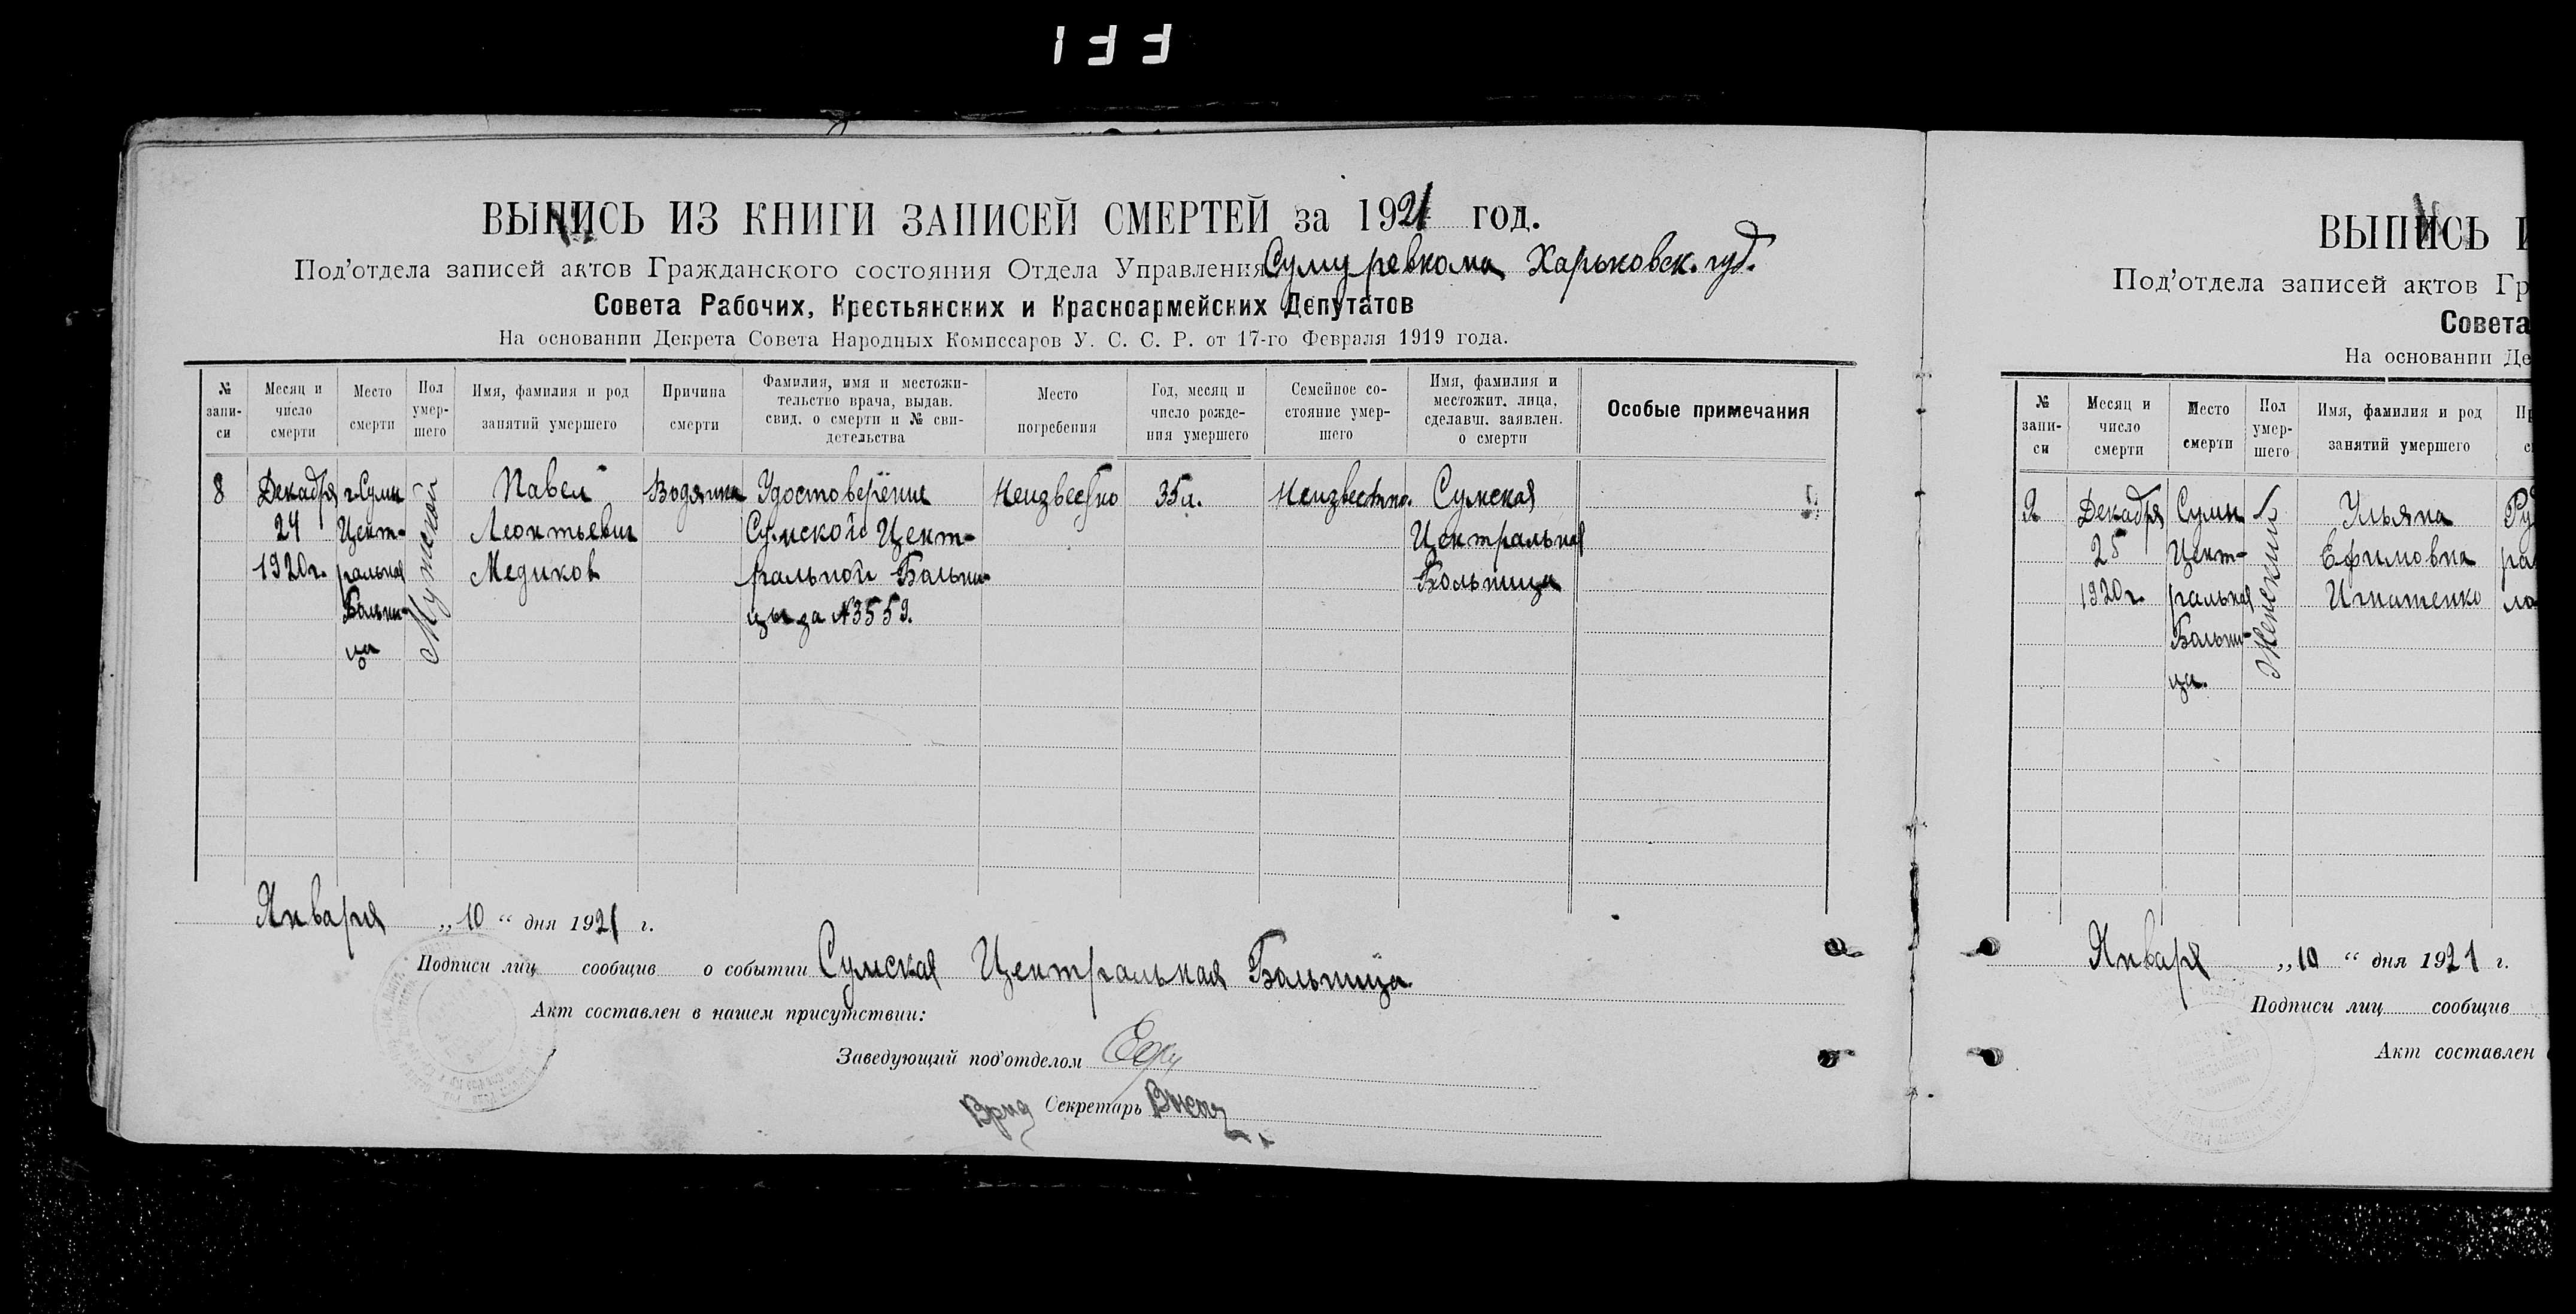 133
ВЫПИСЬ ИЗ КНИГИ ЗАПИСЕЙ СМЕРТЕЙ за 1921 год.
Под'отдела записей актов Гражданского состояния Отдела Управления Сумуревкома Харьковск. губ.
Совета Рабочих, Крестьянских и Красноармейских Депутатов
На основании Декрета Совета Народных Комиссаров У. С. С. Р. от 17-го Февраля 1919 года.
№ запи-
си
Месяц и
число
смерти
Место
смерти
Пол
умер-
шего
Имя, фамилия и род
занятий умершего
Причина
смерти
Фамилия, имя и местожи-
тельство врача, выдав.
свид. о смерти и № сви-
детельства
Место
погребения
Год, месяц и
число рожде-
ния умершего
Семейное со-
стояние умер-
шего
Имя, фамилия и
местожит. лица,
сделавш. заявлен.
о смерти
Особые примечания
8
Декабря
24
1920г.
г. Сумы
Цент-
ральная
Больни-
ца
Мужской
Павел
Леонтьевич
Медиков
Водянка
Удостоверение
Сумской Цент-
ральной Больни-
цы за №3559.
Неизвестно
35 л.
Неизвестно.
Сумская
Центральная
Больница
Января „10“ дня 1921 г.
Подписи лиц сообщив о событии Сумская Центральная Больница
Акт составлен в нашем присутствии:
Заведующий под'отделом
Врид Секретарь
ВЫПИСЬ И
Под'отдела записей актов Гр
Совета
На основании Де
№
запи-
си
Месяц и
число
смерти
Место
смерти
Пол
умер-
шего
Имя, фамилия и род
занятий умершего
Пр
с
9
Декабря
25
1920г.
Сумы
Цент-
ральная
Больни-
ца.
Женский
Ульяна
Ефимовна
Игнатенко
Января „10“ дня 1921 г.
Подписи лиц сообщив
Акт составлен